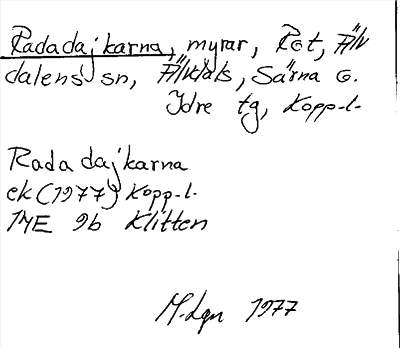 Radadajkarna, myrar, Rot, Älv
dalens sn, Älvdals, Särna o.
Idre tg, Kopp-l.
Radadajkarna
ek (1977) Kopp-l.
14E 9b Klitten
M.Lgn 1977